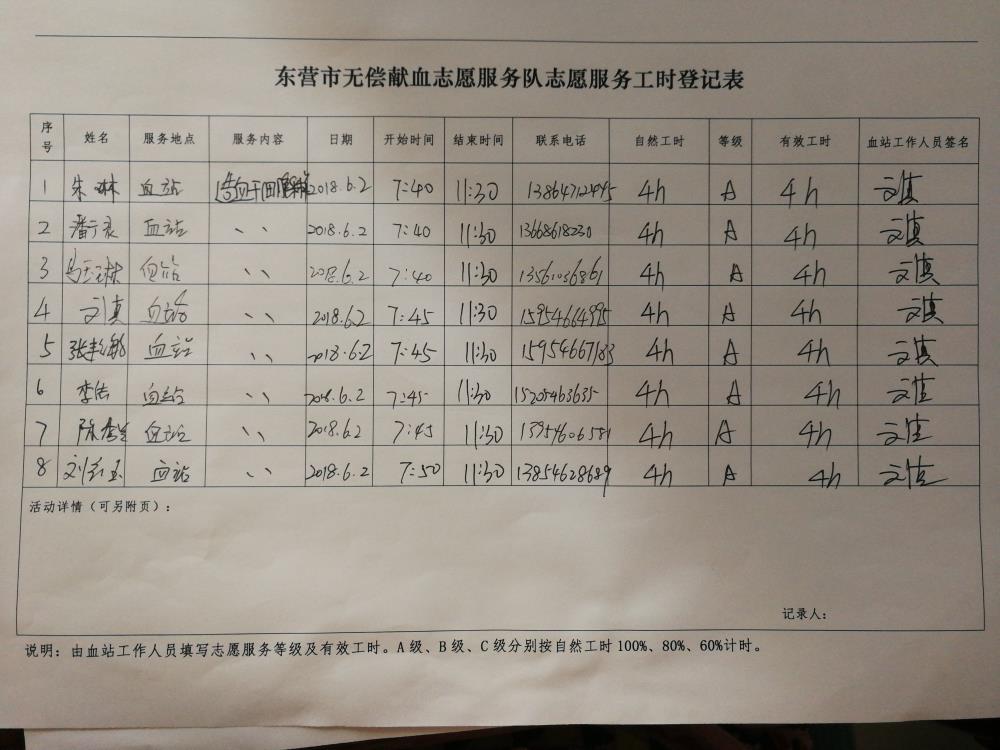 东营市无偿献血志愿服务队志愿服务工时登记表
序号 姓名 服务地点 服务内容 日期 开始时间 结束时间 联系电话 自然工时 等级 有效工时 血站工作人员签名
1 朱琳 血站 2018.6.2 7:40 11:30 13864712495 4h A 4h 文慎
2 血站 、、 2018.6.2 7:40 11:30 13668618230 4h A 4h 文慎
3 血站 、、 2018.6.2 7:40 11:30 13561036861 4h A 4h 文慎
4 文慎 血站 、、 2018.6.2 7:45 11:30 15954664995 4h A 4h 文慎
5 血站 、、 2018.6.2 7:45 11:30 15954667183 4h A 4h 文慎
6 李洁 血站 、、 2018.6.2 7:45 11:30 15205463635 4h A 4h
7 血站 、、 2018.6.2 7:45 11:30 13954606581 4h A 4h
8 刘红玉 血站 、、 2018.6.2 7:50 11:30 13854628689 4h A 4h
活动详情（可另附页）：
记录人：
说明：由血站工作人员填写志愿服务等级及有效工时。A级、B级、C级分别按自然工时100%、80%、60%计时。